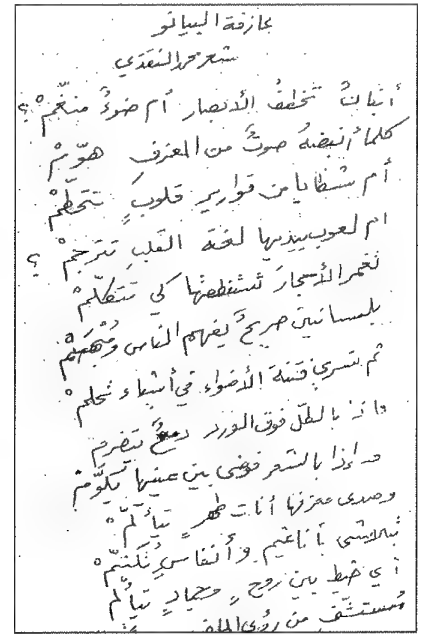 عازفة البيانو
شعر محمد النقدي
أبنانٌ تخطفُ الأبصار أم ضوءٌ منغّمْ ؟
كلما أنبضهُ صوتٌ من المعزفِ هوّمْ
أم شظايا من قوارير قلوبٍ تتحطّمْ
أم لعوب بيديها لغة القلبِ تترجمْ ؟
تغمر الأحجارَ تستنطقها كي تتكلّمْ
بلسانين صريحٌ يفهم الناس ومُبْهَمْ
ثم تسري فتنة الأضواء في أشياء تحلمْ
فاذا بالطلّ فوق الورد دمعٌ يتضرم
واذا بالشعر فوضى بين عينيها تكوّمْ
وصدى معزفها أنات طهرٍ تتألّمْ
تتلاشى بأناغيم وأنفاسٍ تكتّمْ
أي خيط بين روحٍ وجمادٍ يتألم
من رؤى